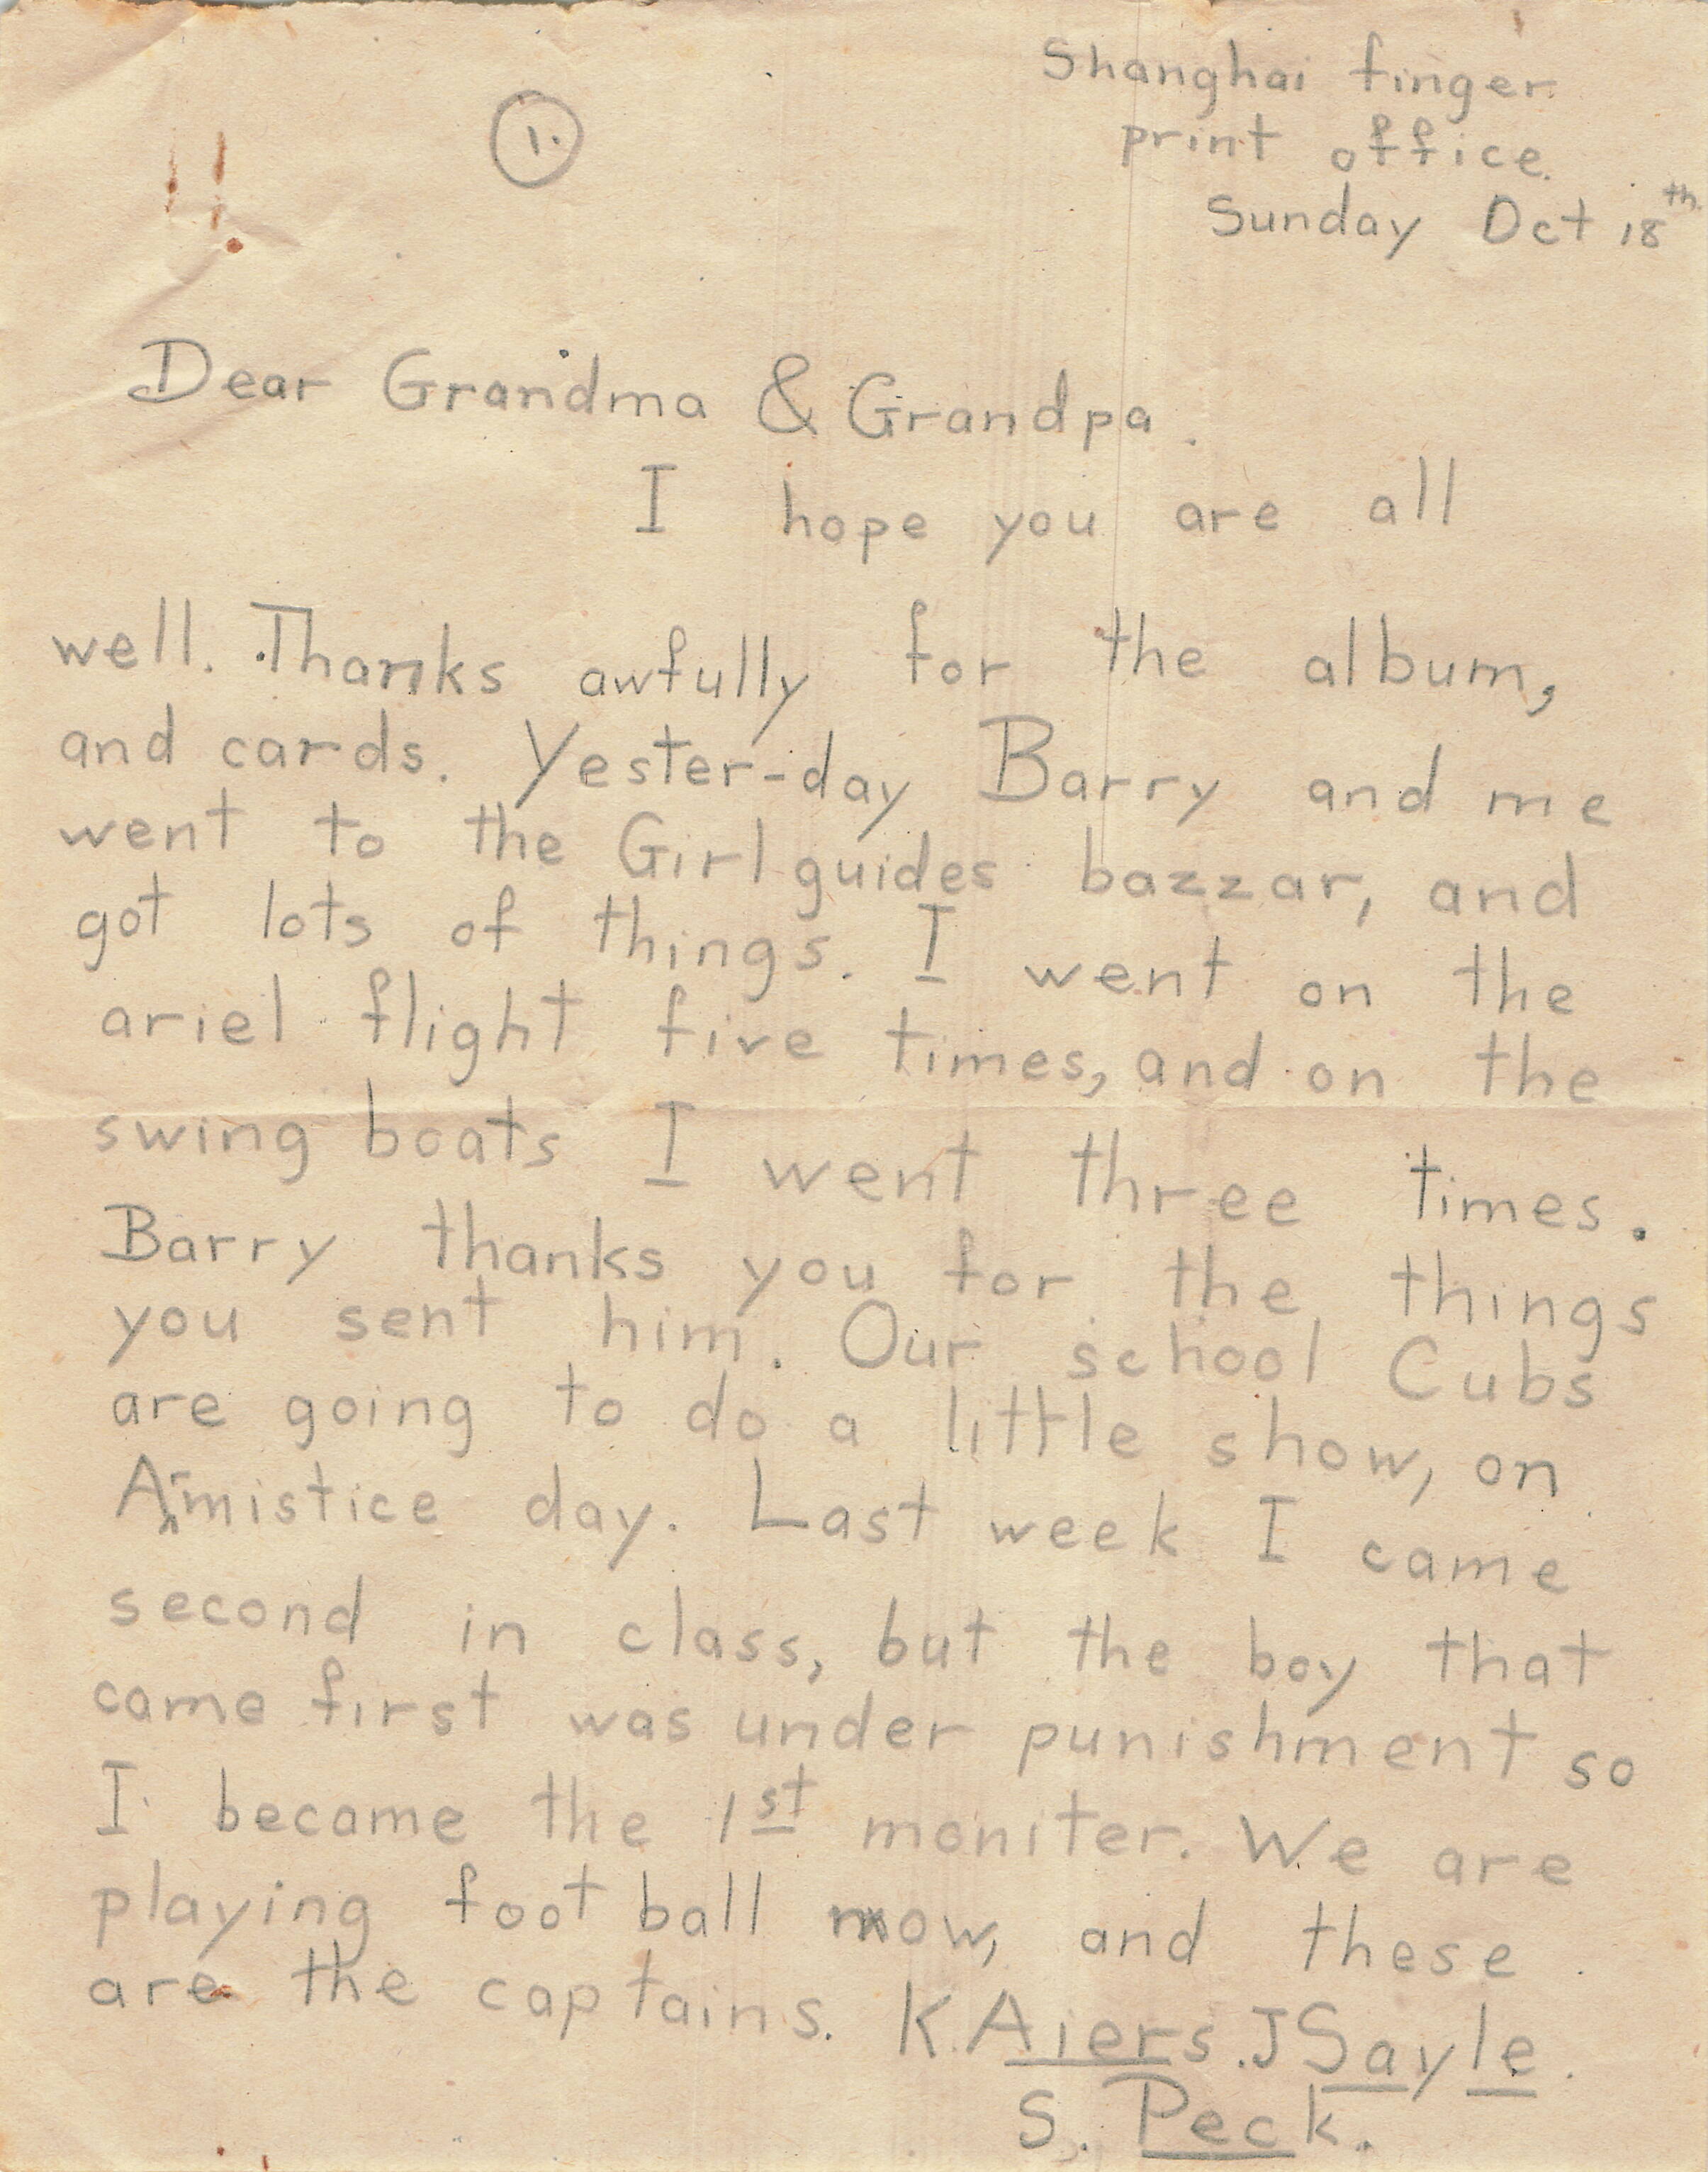 1.
Shanghai finger
print office.
Sunday Oct 18th.
Dear Grandma & Grandpa.
I hope you are all
well. Thanks awfully for the album,
and cards. Yester-day Barry and me
went to the Girl guides bazzar, and
got lots of things. I went on the
ariel flight five times, and on the
swing boats I went three times.
Barry thanks you for the things
you sent him. Our school Cubs
are going to do a little show, on
Armistice day. Last week I came
second in class, but the boy that
came first was under punishment so
I became the 1st moniter. We are
playing foot ball now, and these
are the captains. K. Aiers. J Sayle.
S. Peck.